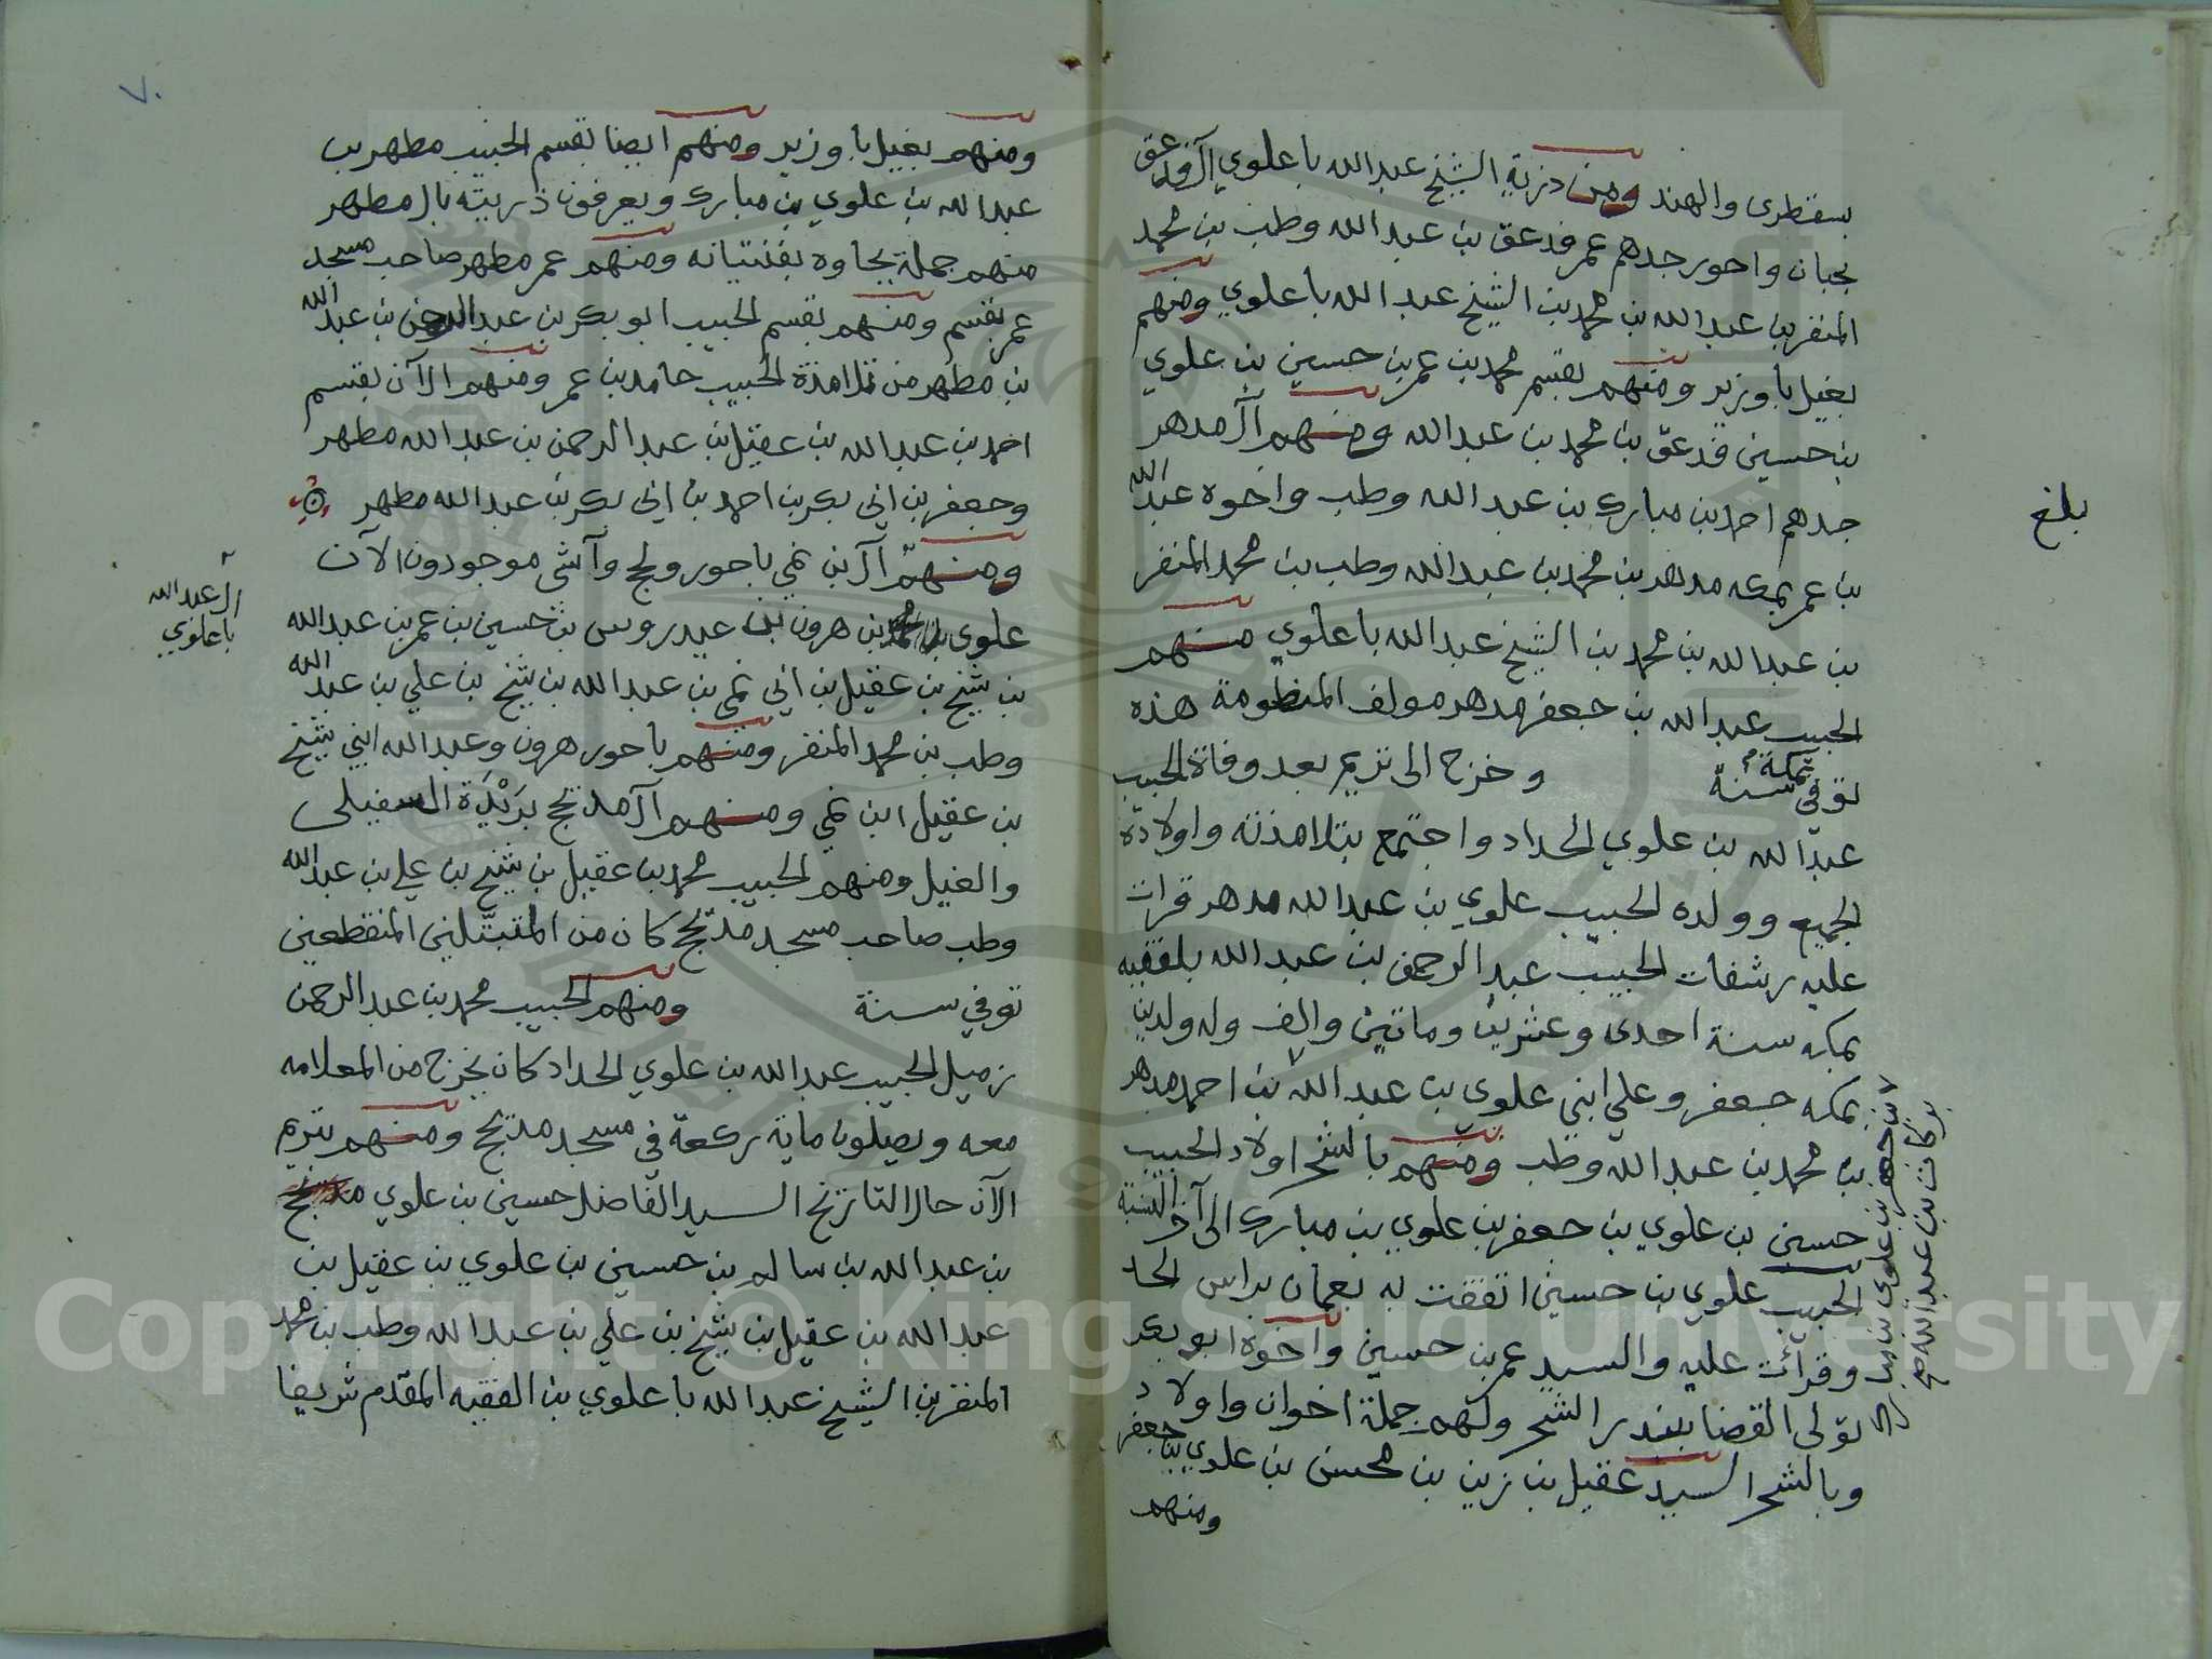 بسقطرى والهند ومن ذرية الشيخ عبدالله باعلوي آل فدعق
بجبان واحور جدهم عمر فدعق بن عبد الله وطب بن محمد
المنفر بن عبدالله بن محمد بن الشيخ عبدالله باعلوي ومنهم
بغيل باوزير ومنهم بقسم محمد بن عمر بن حسين بن علوي
بن حسين فدعق بن محمد بن عبدالله ومنهم آل مدهر
جدهم احمد بن مبارك بن عبد الله وطب واخوه عبد الله
بن عمر بمكه مدهر بن محمد بن عبدالله وطب بن محمد المنفر
بن عبدالله بن محمد بن الشيخ عبدالله باعلوي منهم
الحبيب عبدالله بن جعفر مدهر مولف المنظومة هذه
توفي بمكة سنة وخرج الى تريم بعد وفاة الحبيب
عبدالله بن علوي الحداد واجتمع بتلامذته واولاده
الجميع وولده الحبيب علوي بن عبدالله مدهر قرات
عليه رشفات الحبيب عبد الرحمن بن عبدالله بلفقيه
بمكه سنة احدى وعشرين وماتين والف وله ولدين
بمكه جعفر وعلي ابني علوي بن عبدالله بن احمد مدهر
بن محمد بن عبدالله وطب ومنهم بالشحر اولاد الحبيب
حسين بن علوي بن جعفر بن علوي بن مبارك الى آخر النسبة
الحبيب علوي بن حسين اتفقت به بعمان براس الحد
وقرأت عليه والسيد عمر بن حسين واخوه ابوبكر
تولى القضا ببندر الشحر ولهم جملة اخوان واولاد
وبالشحر السيد عقيل بن زين بن محسن بن علوي بن جعفر
ومنهم
بلغ
بن جعفر بن علوي بن
بركات بن عبدالله صح
٧٠
ومنهم بغيل باوزير ومنهم ايضا بقسم الحبيب مطهر بن
عبدالله بن علوي بن مبارك ويعرفون ذريته بال مطهر
منهم جملة بجاوه بفنتيانه ومنهم عمر مطهر صاحب مسجد
عمر بقسم ومنهم بقسم الحبيب ابوبكر بن عبدالرحمن بن عبد الله
بن مطهر من تلامذة الحبيب حامد بن عمر ومنهم الآن بقسم
احمد بن عبدالله بن عقيل بن عبدالرحمن بن عبدالله مطهر
وجعفر بن ابي بكر بن احمد بن ابي بكر بن عبدالله مطهر
ومنهم آل بن نمي باحور ولحج وآشي موجودون الآن
علوي بن محمد بن هرون بن عيدروس بن حسين بن عمر بن عبدالله
بن شيخ بن عقيل بن ابي نمي بن عبدالله بن شيخ بن علي بن عبد الله
وطب بن محمد المنفر ومنهم باحور هرون وعبدالله ابني شيخ
بن عقيل ابن نمي ومنهم آل مديحج بريدة السفيلى
والغيل ومنهم الحبيب محمد بن عقيل بن شيخ بن علي بن عبد الله
وطب صاحب مسجد مديحج كان من المتبتلين المنقطعين
توفي سنة ومنهم الحبيب محمد بن عبد الرحمن
زميل الحبيب عبدالله بن علوي الحداد كان يخرج من المعلامه
معه ويصلون ماية ركعة في مسجد مديحج ومنهم بتريم
الآن حال التاريخ السيد الفاضل حسين بن علوي مديحج
بن عبدالله بن سالم بن حسين بن علوي بن عقيل بن
عبدالله بن عقيل بن شيخ بن علي بن عبدالله وطب بن محمد
المنفر بن الشيخ عبدالله باعلوي بن الفقيه المقدم شريفا
آل عبدالله
باعلوي
Copyright © King Saud University